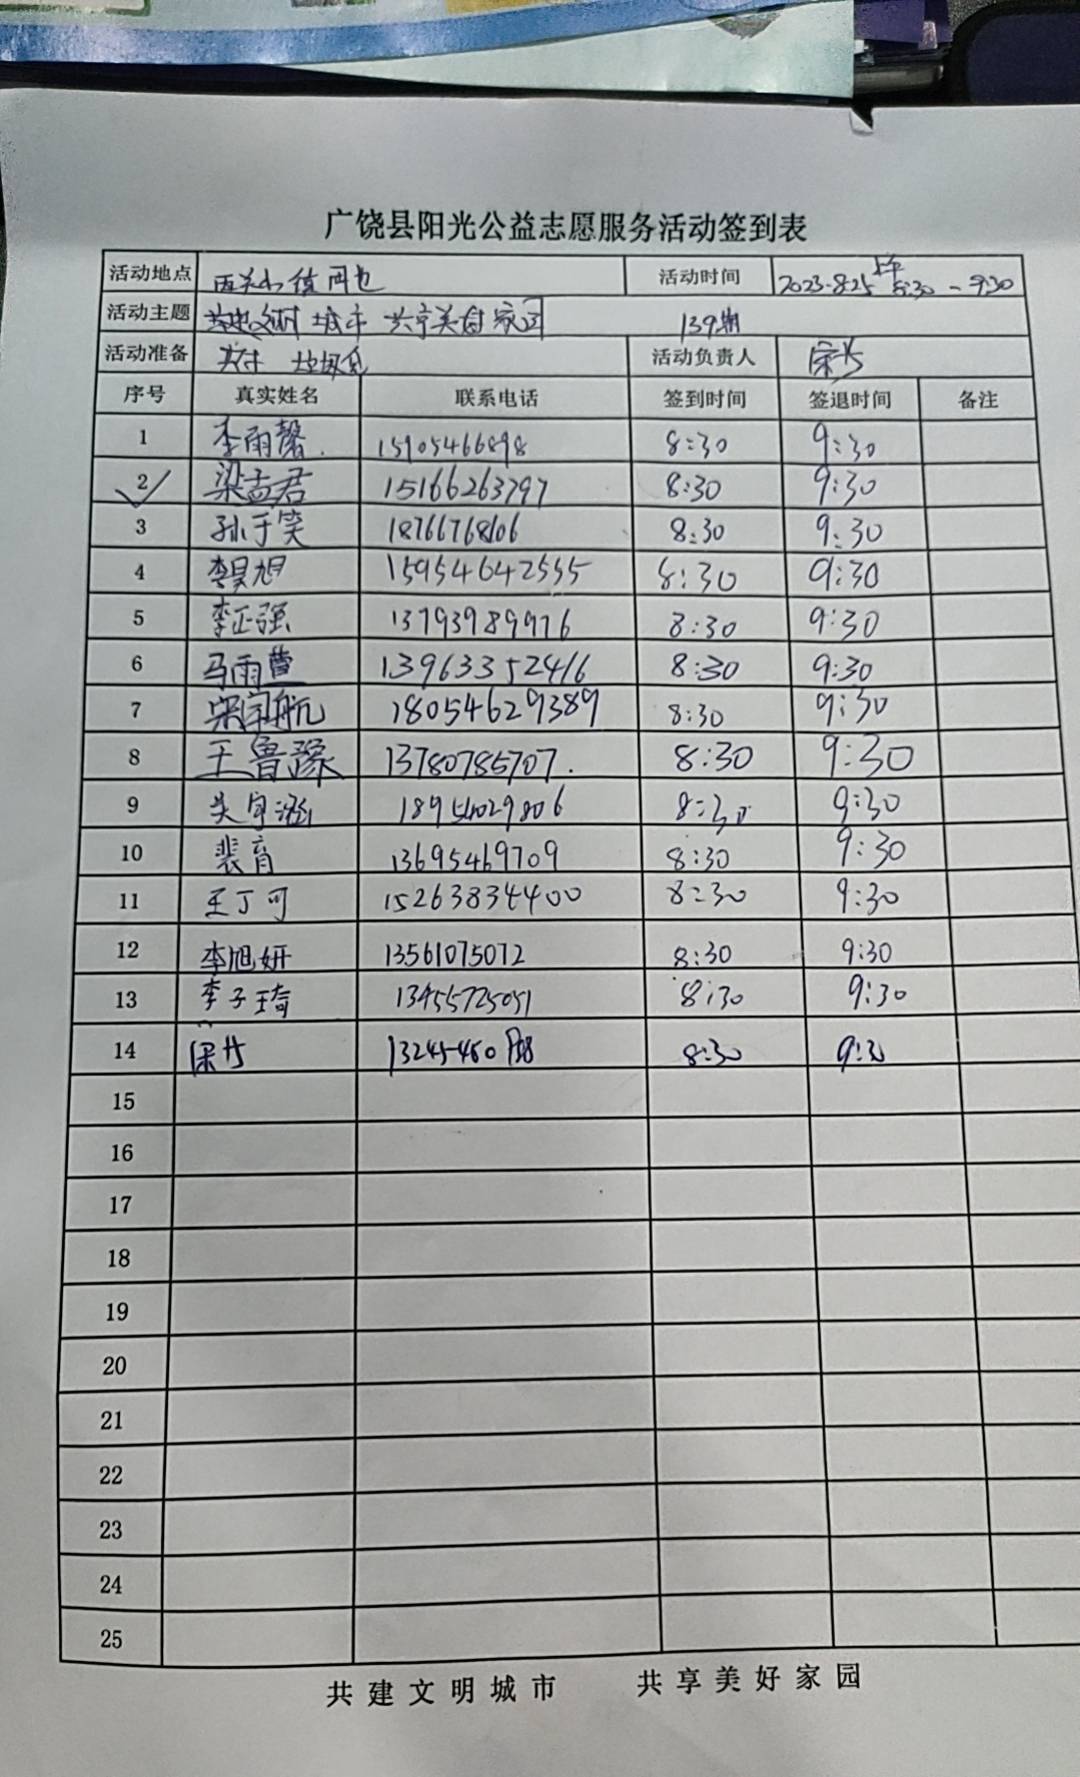 广饶县阳光公益志愿服务活动签到表
活动地点 活动时间 2023.8.25 上午 8:30 - 9:30
活动主题 共建文明城市 共享美好家园 139期
活动准备 夹子 垃圾 活动负责人
序号 真实姓名 联系电话 签到时间 签退时间 备注
1 李雨馨 15905466898 8:30 9:30
2 梁孟君 15166263797 8:30 9:30
3 孙于笑 18766768606 8:30 9:30
4 李昊旭 15954642555 8:30 9:30
5 李正强 13793989976 8:30 9:30
6 马雨萱 13963352416 8:30 9:30
7 宋宇航 18054629389 8:30 9:30
8 王鲁豫 13780785707. 8:30 9:30
9 吴宇涵 18954029806 8:30 9:30
10 裴育 13695469709 8:30 9:30
11 王丁可 15263834400 8:30 9:30
12 李旭妍 13561075072 8:30 9:30
13 李子琦 13455725051 8:30 9:30
14 8:30 9:30
15
16
17
18
19
20
21
22
23
24
25
共建文明城市 共享美好家园